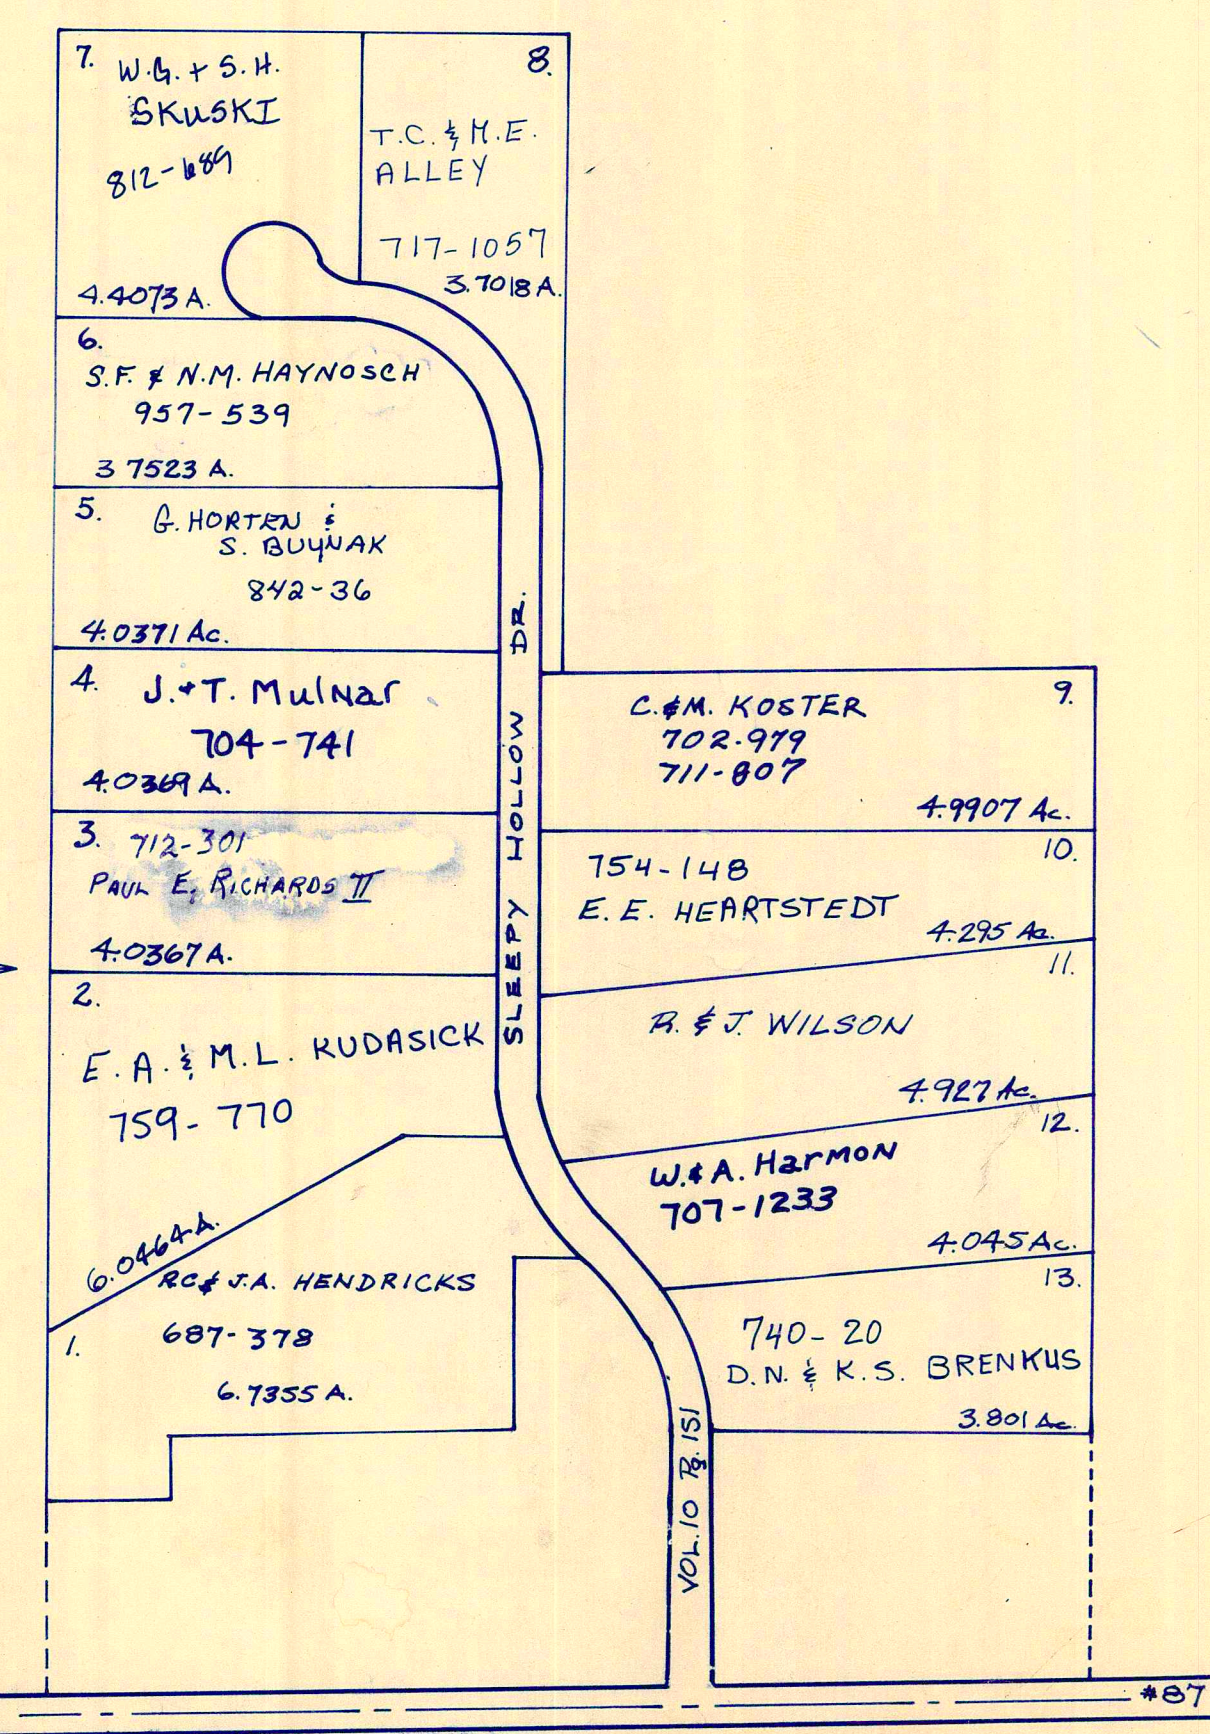 7.
W.G. + S.H.
SKUSKI
812-689
4.4073 A.
8.
T.C. & M.E.
ALLEY
717-1057
3.7018 A.
6.
S.F. & N.M. HAYNOSCH
957-539
3 7523 A.
5.
G. HORTEN &
S. BUYNAK
842-36
4.0371 Ac.
4.
J. + T. MulNar
704-741
4.0369 A.
3.
712-301
PAUL E. RICHARDS II
4.0367 A.
2.
E. A. & M. L. KUDASICK
759-770
6.0464 A.
1.
RC & J.A. HENDRICKS
687-378
6.7355 A.
SLEEPY HOLLOW DR.
VOL. 10 Pg. 151
9.
C. & M. KOSTER
702-979
711-807
4.9907 Ac.
10.
754-148
E. E. HEARTSTEDT
4.295 Ac.
11.
R. & J. WILSON
4.927 Ac.
12.
W. & A. HarmoN
707-1233
4.045 Ac.
13.
740-20
D.N. & K.S. BRENKUS
3.801 Ac.
#87